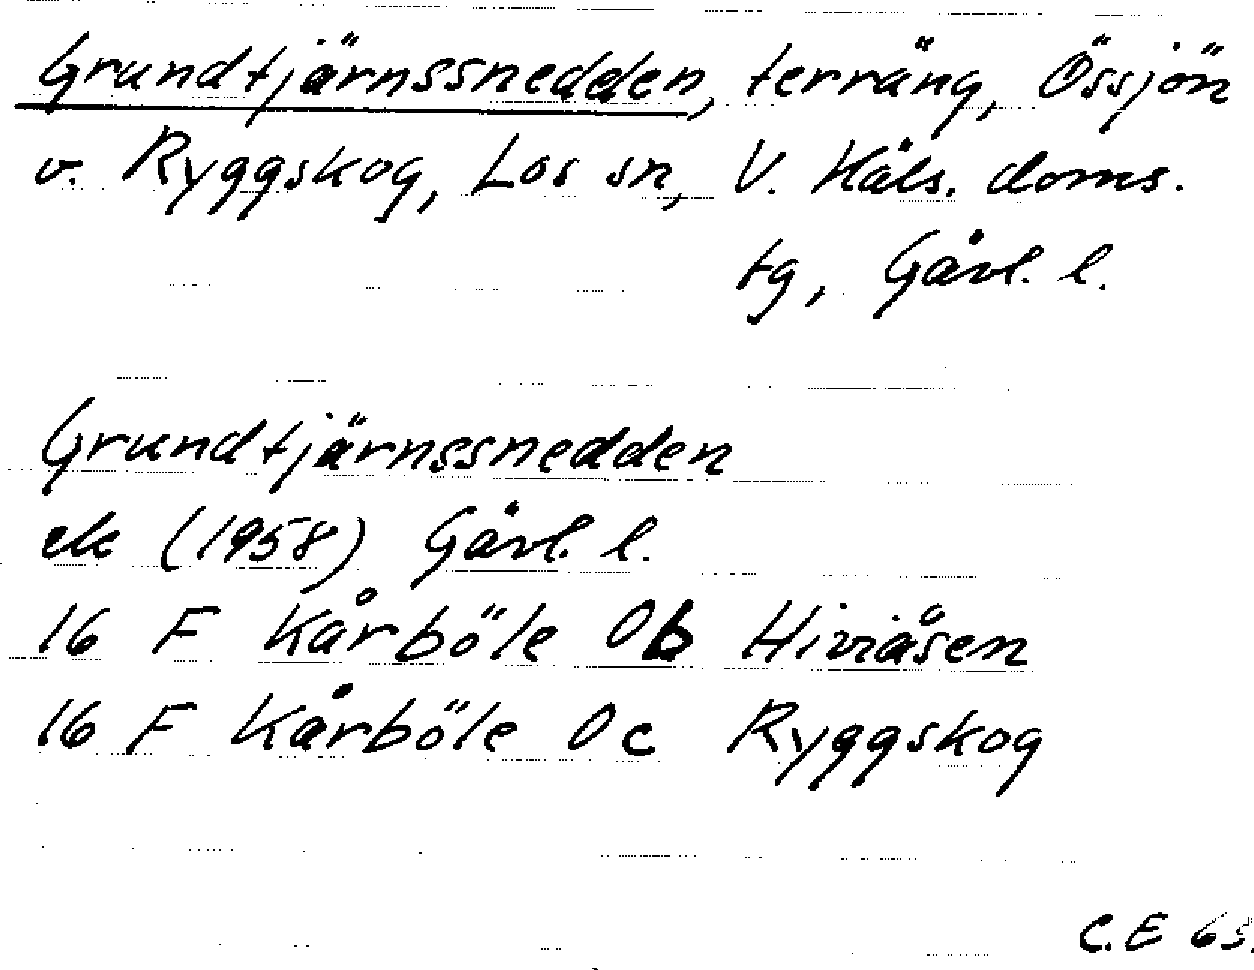 Grundtjärnssnedden, terräng, Össjön
v. Ryggskog, Los sn, V. Häls. doms.
tg, Gävl. l.
Grundtjärnssnedden
ek (1958) Gävl. l.
16 F Kårböle 0b Hiviåsen
16 F Kårböle 0c Ryggskog
C.E 65.